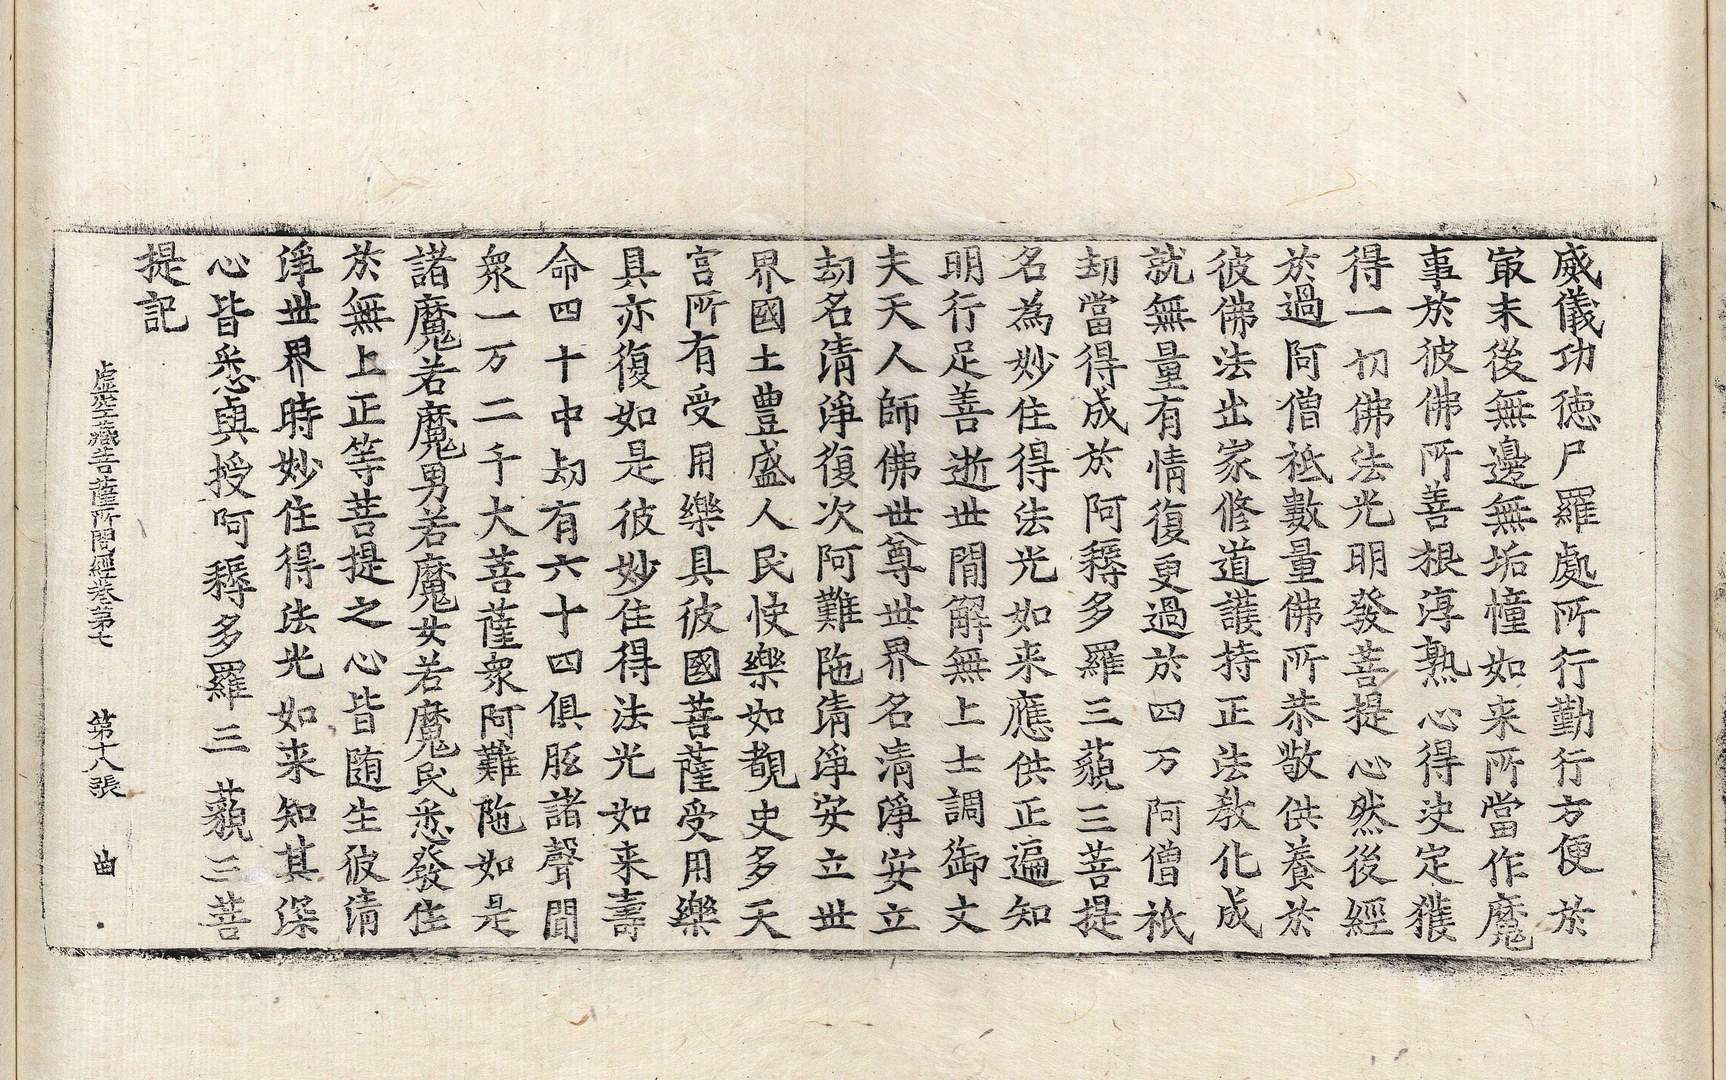 威儀功德尸羅處所行勤行方便於
㝡末後無邊無垢幢如来所當作魔
事於彼佛所善根淳熟心得決定獲
得一切佛法光明發菩提心然後經
於過阿僧祇數量佛所恭敬供養於
彼佛法出家修道護持正法教化成
就無量有情復更過於四万阿僧祇
劫當得成於阿耨多羅三藐三菩提
名為妙住得法光如来應供正遍知
明行足善逝世閒解無上士調御丈
夫天人師佛世尊世界名清淨安立
劫名清淨復次阿難陁清淨安立世
界國土豊盛人民快樂如覩史多天
宫所有受用樂具彼國菩薩受用樂
具亦復如是彼妙住得法光如来壽
命四十中劫有六十四俱胝諸聲聞
衆一万二千大菩薩衆阿難陁如是
諸魔若魔男若魔女若魔民悉發住
於無上正等菩提之心皆随生彼清
淨世界時妙住得法光如来知其深
心皆悉與授阿耨多羅三藐三菩
提記
虛空藏菩薩所問經卷第七 第十八張 曲